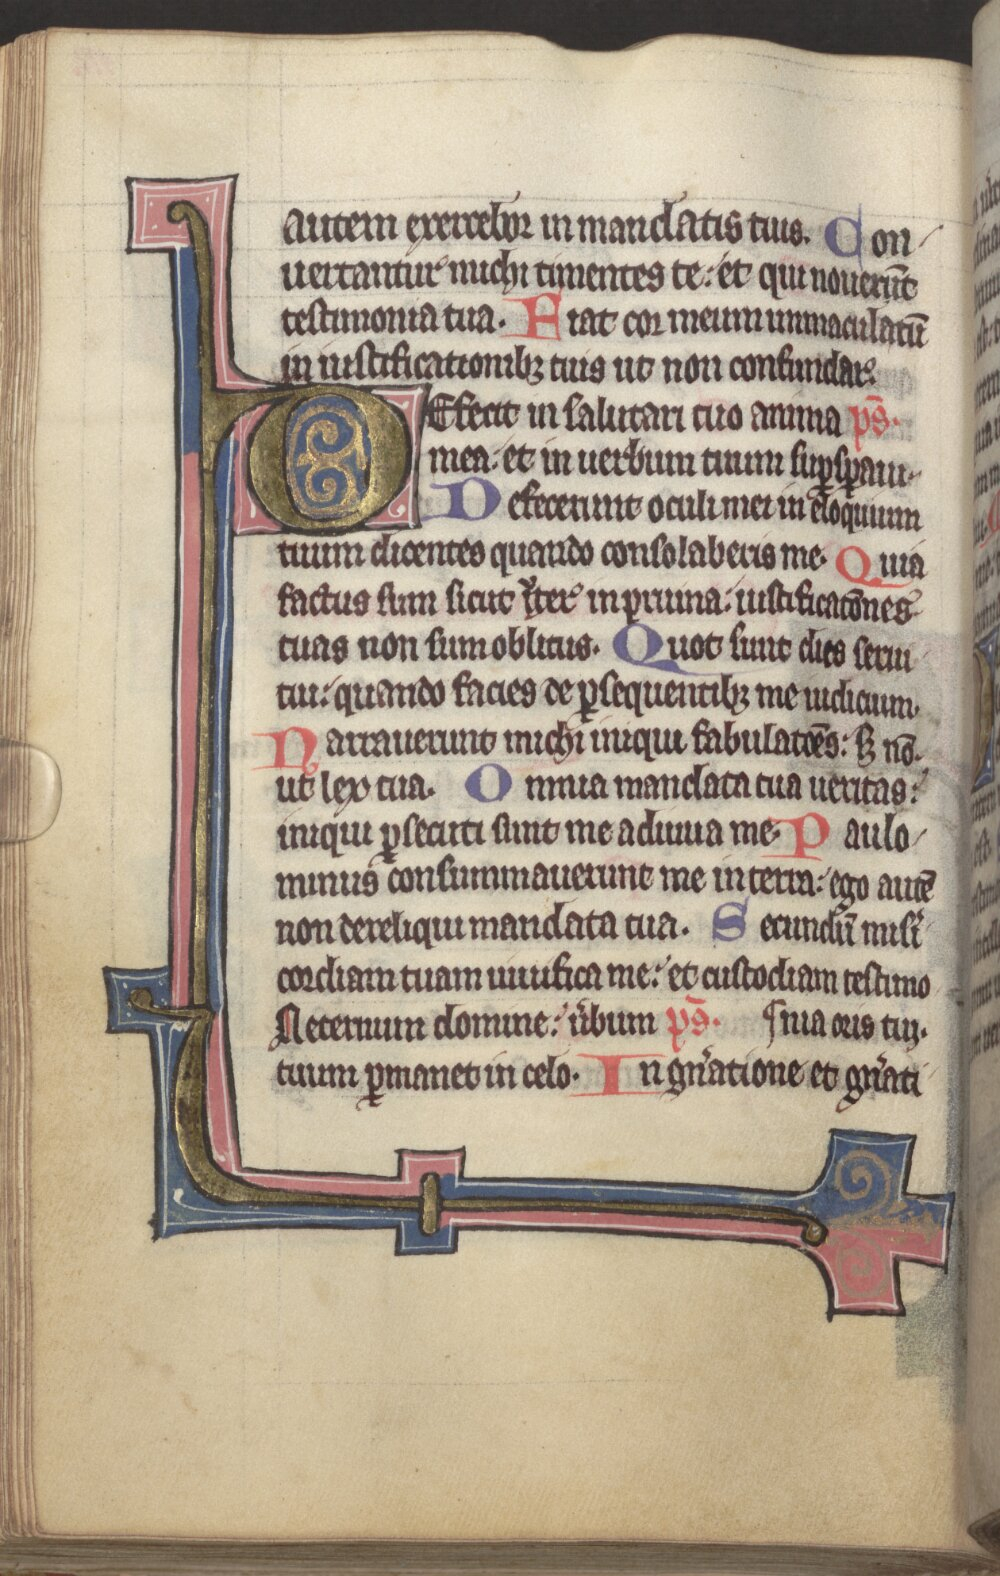 autem exercebor in mandatis tuis. Con
uertantur michi timentes te: et qui nouerūt
testimonia tua. Fiat cor meum inmaculatū
in iustificationibꝫ tuis ut non confundar.
DEfecit in salutari tuo anima p̄s.
mea: et in uerbum tuum suꝑsꝑaui.
Defecerunt oculi mei in eloquium
tuum dicentes quando consolaberis me. Quia
factus sum sicut ut̓er in pruina: iustificatōnes
tuas non sum oblitus. Quot sunt dies serui
tui: quando facies de ꝑsequentibꝫ me iudicium.
Narrauerunt michi iniqui fabulatōes: sꝫ nō.
ut lex tua. Omnia mandata tua ueritas:
iniqui ꝑsecuti sunt me adiuua me. Paulo
minus consummauerunt me in terra: ego autē
non dereliqui mandata tua. Secundū mis̓i
cordiam tuam uiuifica me: et custodiam testimo
Aeternum domine: u̓bum p̄s. ¶nia oris tui.
tuum ꝑmanet in celo. In gn̓atione et gn̓ati